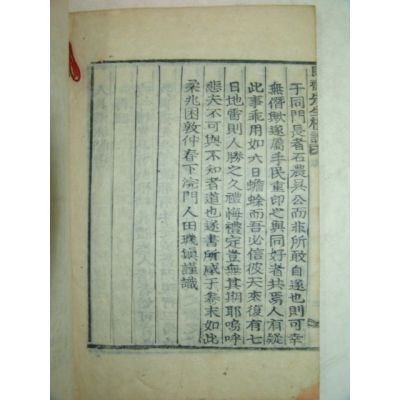 齋先生禮說
于同門長者石農吳公而非所敢自逸也則可幸
無僭歟遂屬手民重印之與同好者共焉人有疑
此事乖用如六日蟾蜍而吾必信彼天來復有七
日地雷則人勝之久禮悔禮定豈無其期耶嗚呼
悲夫不可與不知者道也遂書所感于末如此
柔兆困敦仲春下浣門人田璣鎭謹識